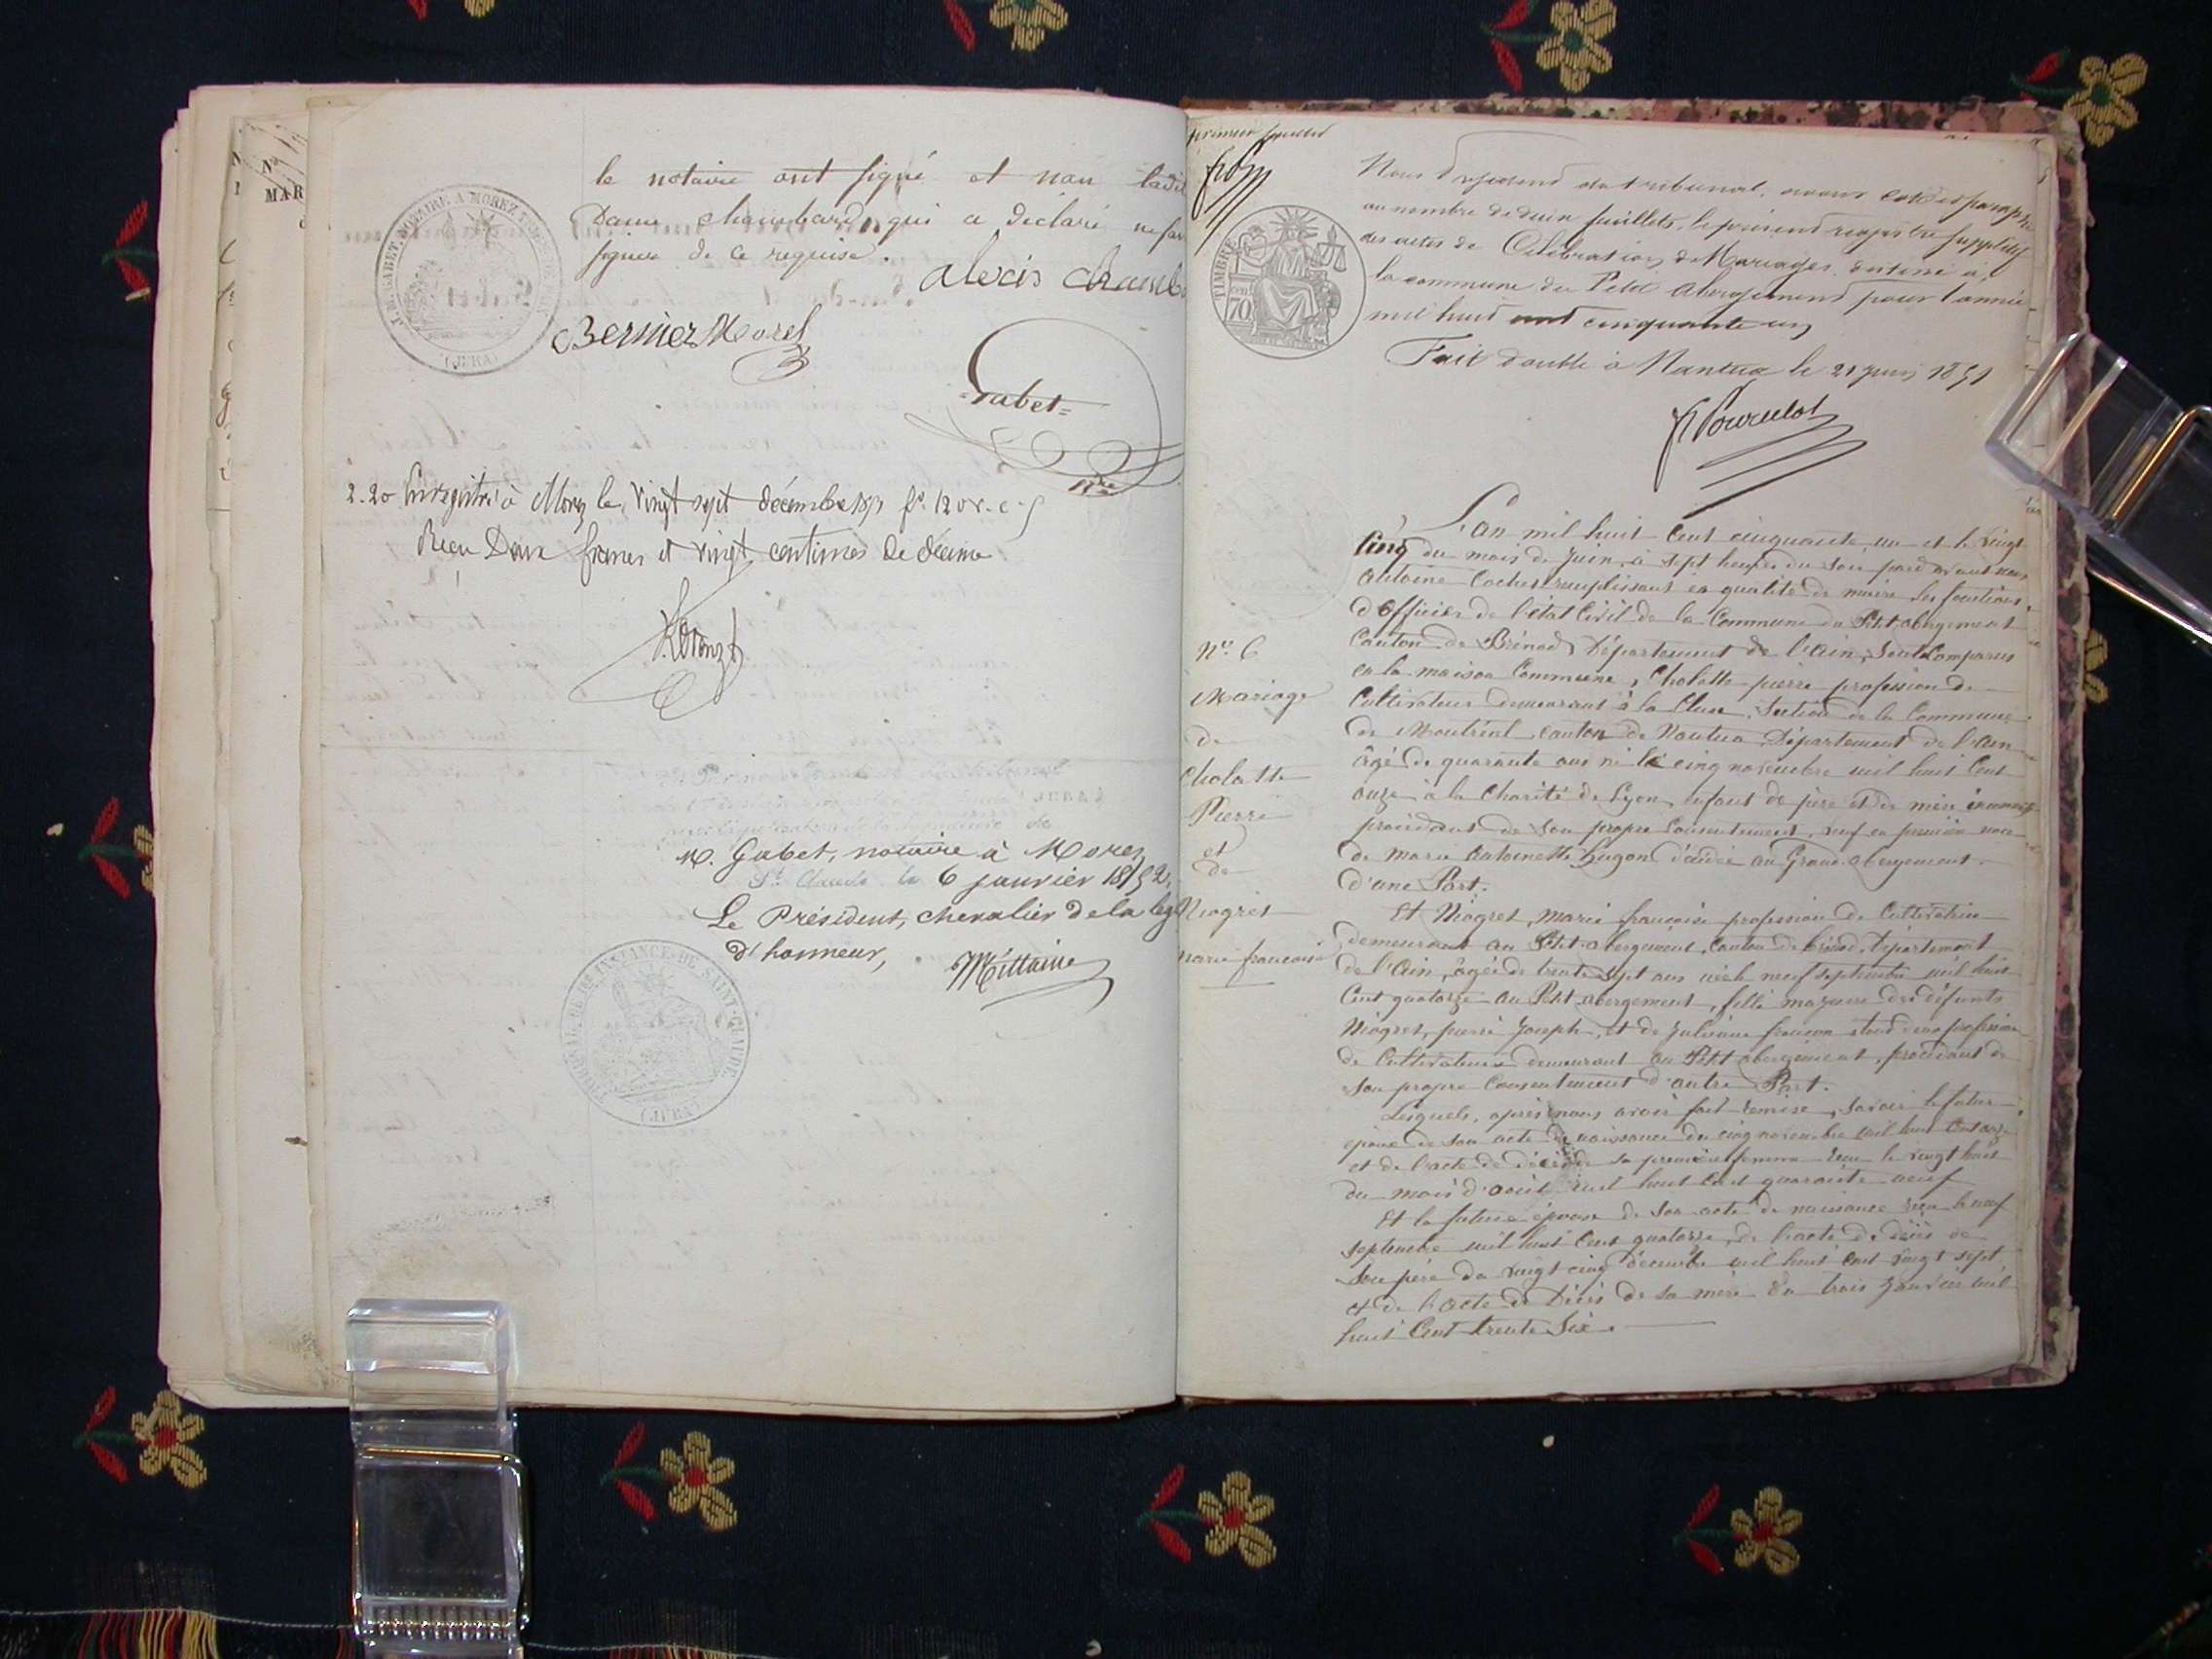 le notaire ont signé et non ladi
Dame Chambard, qui a déclaré ne sa
signer de ce requise.
alexis Chamb
Bernier Morel
Gabet
J.B. GABET, NOTAIRE A MOREZ
(JURA)
2.20 Enregistré à Morez le vingt sept décembre 1851 fo. 120 v. c.
Reçu Deux francs et vingt centimes de décime
M. Gabet, notaire à Morez
St Claude le 6 janvier 1852,
Le Président, chevalier de la leg
d'honneur,
TRIBUNAL DE 1ère INSTANCE DE SAINT-CLAUDE
(JURA)
No
MAR
premier feuillet
TIMBRE
70
Nous Président du tribunal, avons coté et paraphé
au nombre de deux feuillets, le présent registre supplétif
des actes de Célébration de Mariages destiné à
la commune du Petit abergement pour l'année
mil huit cent cinquante un
Fait double à Nantua le 21 juin 1851
L'an mil huit Cent cinquante un et le vingt
Cinq du mois de Juin, à sept heures du soir pard avant nous
antoine Cochet remplissant en qualité de maire les fonctions
d'officier de l'état Civil de la Commune du Petit abergement
Canton de Brénod Département de l'ain, Sont Comparus
en la maison Commune, Cholatte pierre profession de
Cultivateur demeurant à la Cluse, Section de la Commune
de Montréal canton de Nantua Département de l'ain
âgé de quarante ans né le cinq novembre mil huit Cent
onze à la Charité de Lyon, enfant de père et de mère inconnus
procédant de son propre Consentement, veuf en première noce
de marie antoinette hugon décédée au Grand abergement
d'une Part.
Et Niogret, marie françoise profession de Cultivatrice
demeurant au Petit abergement, Canton de brénod, Département
de l'ain, âgée de trente sept ans née le neuf septembre mil huit
Cent quatorze au Petit abergement, fille majeure des défunts
Niogret, pierre Joseph, et de Julienne françon tous deux profession
de Cultivateurs demeurant au Petit abergement, procédant de
son propre Consentement d'autre Part.
Lesquels, après nous avoir fait remise, savoir le futur
époux de son acte de naissance du cinq novembre mil huit Cent onze
et de l'acte de décès de sa première femme reçu le vingt huit
du mois d'août mil huit Cent quarante neuf
Et la future épouse de son acte de naissance reçu le neuf
septembre mil huit Cent quatorze, de l'acte de décès de
son père du vingt cinq décembre mil huit cent vingt sept
et de l'acte de Décès de sa mère du trois Janvier mil
huit Cent trente Six.
No. 6
Mariage
de
Cholatte
Pierre
et
de
Niogret
marie françoise